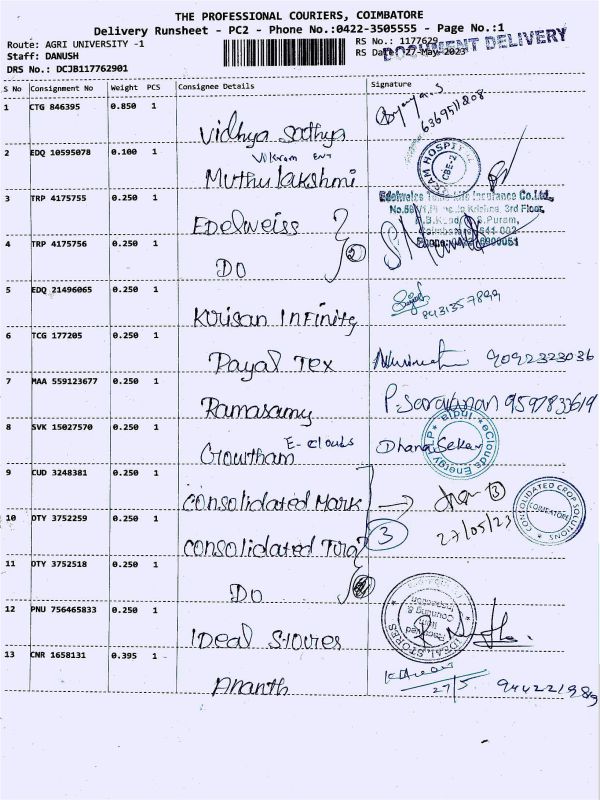 THE PROFESSIONAL COURIERS, COIMBATORE
Delivery Runsheet - PC2 - Phone No.:0422-3505555 - Page No.:1
Route: AGRI UNIVERSITY -1
RS No.: 1177629
DOCUMENT DELIVERY
Staff: DANUSH
RS Date: 27-May-2023
DRS No.: DCJB117762901
S No Consignment No Weight PCS Consignee Details Signature
1 CTG 846395 0.850 1
Vidhya Sathya 6369511808
2 EDQ 10595078 0.100 1
Vikram ENT
Muthu lakshmi
3 TRP 4175755 0.250 1
Edelweiss
Edelweiss Life Insurance Co.Ltd.,
3rd Floor,
Puram,
4 TRP 4175756 0.250 1
DO
5 EDQ 21496065 0.250 1
Krisan Infinity 8431357899
6 TCG 177205 0.250 1
Payal Tex 9092323036
7 MAA 559123677 0.250 1
Ramasamy P. Saravanan 9597833619
8 SVK 15027570 0.250 1
Gowtham E-clouds Dhana Sekar
eClouds Energy LLP
9 CUD 3248381 0.250 1
Consolidated Mark
CONSOLIDATED CROP SOLUTIONS
COIMBATORE
10 DTY 3752259 0.250 1
Consolidated 3 27/05/23
11 DTY 3752518 0.250 1
DO
12 PNU 756465833 0.250 1
Ideal Stores
IDEAL STORES
13 CNR 1658131 0.395 1
Ananth 27/5